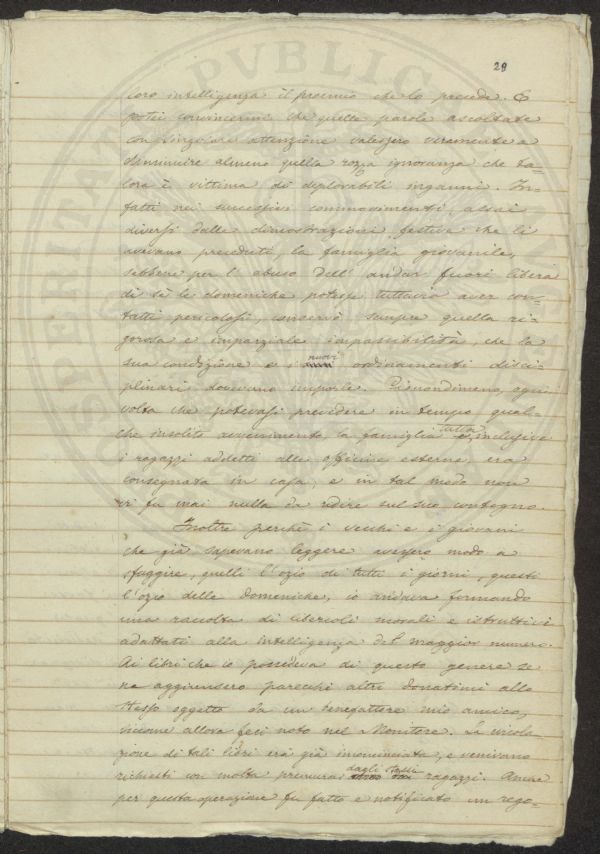 29
loro intelligenza il proemio che lo precede. E
potei convincermi che quelle parole ascoltate
con singolare attenzione valessero veramente a
diminuire almeno quella rozza ignoranza che ta=
lora è vittima di deplorabili inganni. In=
fatti nei successivi commovimenti, assai
diversi dalle dimostrazioni festive che li
avevano preceduti, la famiglia giovanile,
sebbene per l'abuso dell'andar fuori libera
di sè le domeniche potesse tuttavia aver con=
tatti pericolosi, conservò sempre quella ri=
gorosa e imparziale impassibilità, che la
sua condizione e i nuovi ordinamenti disci=
plinari dovevano imporle. Ciònondimeno, ogni
volta che potevasi prevedere in tempo qual=
che insolito avvenimento, la famiglia tutta, inclusive
i ragazzi addetti alle officine esterne, era
consegnata in casa, e in tal modo non
vi fu mai nulla da ridire sul suo contegno.
Inoltre perchè i vecchi e i giovani
che già sapevano leggere avessero modo a
sfuggire, quelli l'ozio di tutti i giorni, questi
l'ozio delle domeniche, io andava formando
una raccolta di libercoli morali e istruttivi
adattati alla intelligenza del maggior numero.
Ai libri che io possedeva di questo genere se
ne aggiunsero parecchi altri donatimi allo
stesso oggetto da un benefattore mio amico,
siccome allora feci noto nel Monitore. La circola=
zione di tali libri era già incominciata, e venivano
richiesti con molta premura dagli stessi ragazzi. Anche
per questa operazione fu fatto e notificato un rego=